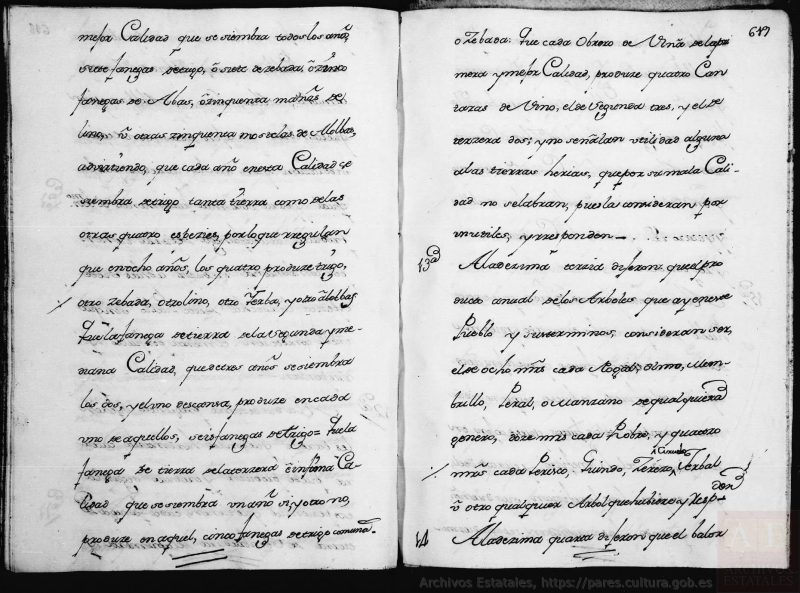 mejor Calidad que se siembra todos los años,
siete fanegas de trigo, ò siete de zebada, ò zinco
fanegas de Abas, ò zinquenta mañas de
lino, ù otras zinquenta mostelas de Alolbas,
advirtiendo, que cada año en esta Calidad se
siembra de trigo tanta tierra como de las
otras quatro espezies, por lo que rregulan
que en ocho años, los quatro produze trigo,
otro zebada, otro lino, otro Yerba, y otro alolbas
Que la fanega de tierra de la Segunda y me-
diana Calidad, que de tres años se siembra
los dos, y el uno descansa, produze en cada
uno de aquellos, seis fanegas de trigo = Que la
fanega de tierra de la terzera è infima Ca-
lidad que se siembra un año si, y otro no,
produze en aquel, cinco fanegas de trigo comuna
649
o Zebada: Que cada Obrero de Viña de la pri
mera y mejor Calidad, produze quatro Can
taras de Vino, el de Segunda tres, y el de
terzera dos; y no señalan utilidad alguna
a las tierras herias, que por su mala Cali-
dad no se labran, pues las consideran por
inutiles, y rresponden
13ª
A la dezima terzia dijeron que el pro
ducto anual de los Arboles que ay en este
Pueblo y sus terminos, consideran ser,
el de ocho mrs cada Nogal, olmo, Mem-
brillo, Peral, o Manzano de qualquiera
genero, doze mrs cada Roble, y quatro
Ciruelo
mrs cada Prisco, Guindo, Zerezo, Serbal
ù otro qualquier Arbol que hubiere, y Resp-
den
14
A la dezima quarta dijeron que el balor
Archivos Estatales, https://pares.cultura.gob.es
AE
ARCHIVOS
ESTATALES